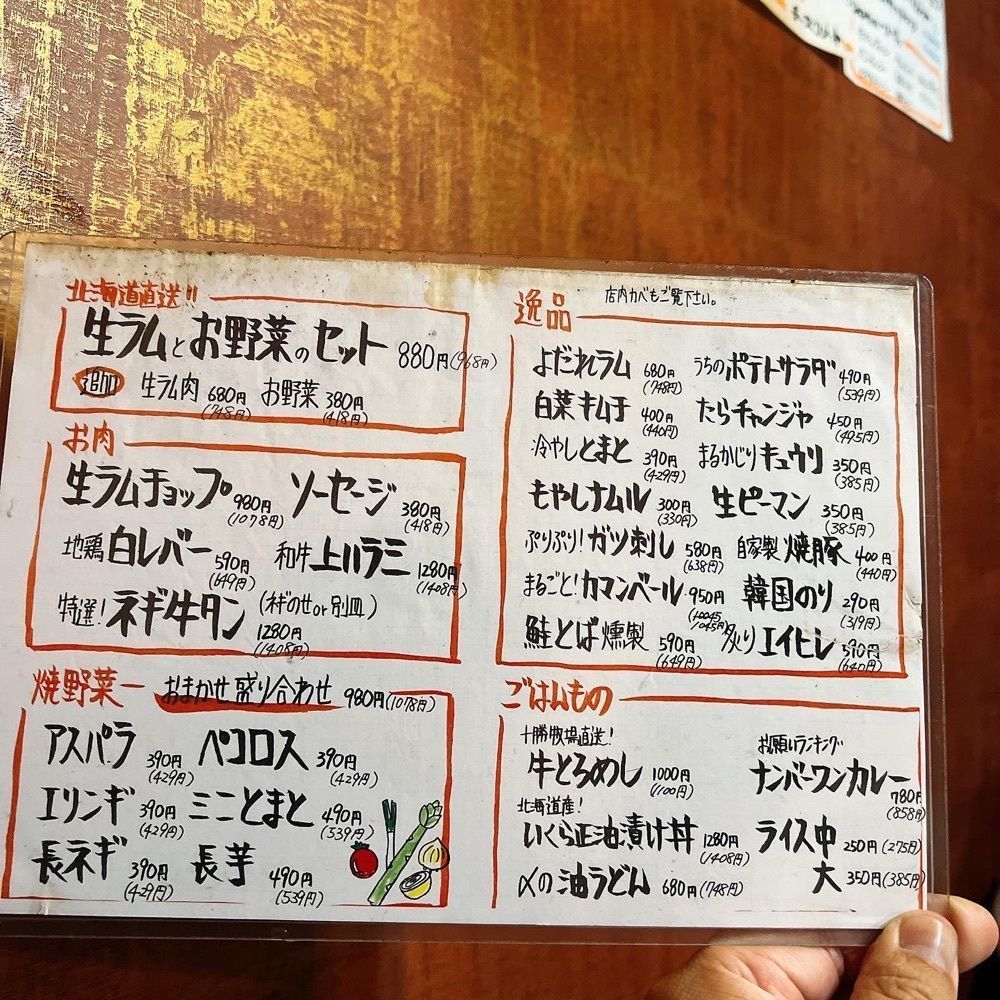 北海道直送!!
生ラムとお野菜のセット 880円(968円)
追加 生ラム肉 680円(748円) お野菜 380円(418円)
お肉
生ラムチョップ 980円(1078円) ソーセージ 380円(418円)
地鶏白レバー 590円(649円) 和牛上ハラミ 1280円(1408円)
特選!ネギ牛タン(ネギのせor別皿) 1280円(1408円)
焼野菜 おまかせ盛り合わせ 980円(1078円)
アスパラ 390円(429円) ペコロス 390円(429円)
エリンギ 390円(429円) ミニとまと 490円(539円)
長ネギ 390円(429円) 長芋 490円(539円)
逸品 店内カベもご覧下さい。
よだれラム 680円(748円) うちのポテトサラダ 490円(539円)
白菜キムチ 400円(440円) たらチャンジャ 450円(495円)
冷やしとまと 390円(429円) まるかじりキュウリ 350円(385円)
もやしナムル 300円(330円) 生ピーマン 350円(385円)
ぷりぷり!ガツ刺し 580円(638円) 自家製焼豚 400円(440円)
まるごと!カマンベール 950円 韓国のり 290円(319円)
鮭とば燻製 590円(649円) 炙りエイヒレ 590円(640円)
ごはんもの
十勝牧場直送!
牛とろめし 1000円(1100円)
お願いランキング
ナンバーワンカレー 780円(858円)
北海道産!
いくら正油漬け丼 1280円(1408円) ライス中 250円(275円)
〆の油うどん 680円(748円) 大 350円(385円)